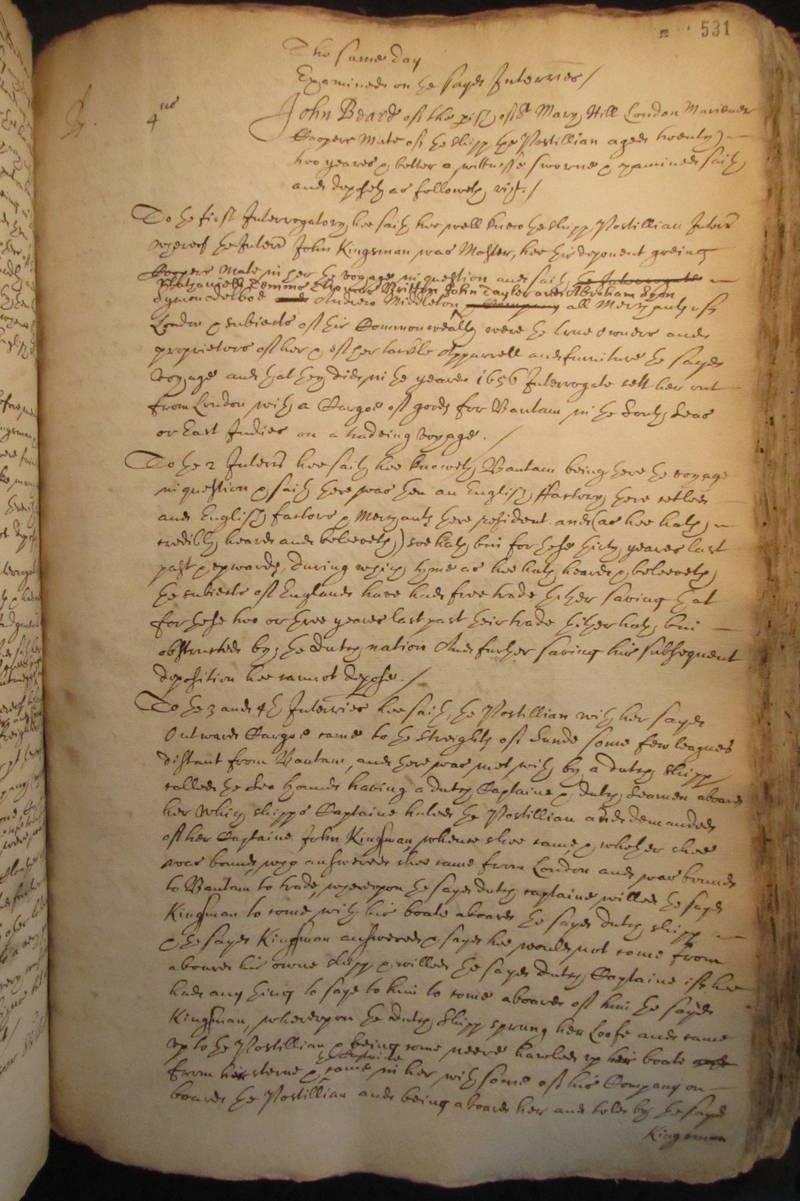 531
The same day
Examined on the sayd Interries /
4us
John Beard of the parish of St Mary Hill London Mariner
Coopers Mate of the shipp the Postillian aged twenty
two yeares & better a wittnesse sworne & examined saith
and deposeth as followeth vizt. /
To the first Interrogatory hee saith hee well knew the shipp Postillian Interrate
whereof the Interrate John Kingsman was Master, hee this deponent goeing
Coopers Mate in her the voyage in question and saith the Interrogate
Nathaniell Temms Britton John Taylor and Abraham
Andrew Middleton Company all Merchants of
London & subiects of this Commonwealth were the true Owners and
proprietors of her & of her tackle Apparrell and furniture the sayd
voyage and that they did in the yeare 1656 Interrogate sett her out
from London with a Cargoe of goods for Bantam in the South Seas
or East Indies on a tradeing voyage. /
To the 2 Interrie hee saith hee knoweth Bantam being there the voyage
in question & saith there was then an English ffactory there setled
and English factors & Merchants there resident and (as hee hath
credibly heard and beleeveth) soe hath bin for these thirty yeares last
past & upwards, during which tyme as hee hath heard & beleeveth
the subiects of England have had free trade thither saving that
for these two or three yeares last past their trade thither hath bin
obstructed by the dutch nation And further saving his subsequent
deposition hee cannot depose. /
To the 3 and 4th Interries hee saith the Postillian with her sayd
Outward Cargoe came to the Streights of Sunde some few leagues
distant from Bantam, and there was mett with by a dutch shipp
called the having a dutch Captaine & dutch Seamen aboard
her Which shipps Captaine haled the Postillian and demanded
of her Captaine John Kingsman whence shee came, & whether shee
was bound, who answered shee came from London and was bound
to Bantam to trade, whereupon the sayd dutch captaine willed the sayd
Kingsman to come with his boate aboard the sayd dutch shipp
& the sayd Kingsman answered & sayd hee would not come from
aboard his owne shipp & willed the sayd dutch Captaine if hee
had any thing to saye to him to come aboard of him the sayd
Kingsman, whereupon the dutch shipp sprung her Loofe and came
up to the Postillian & being come neere haled up their boate
from their sterne & the Captaine came in her with some of his Company on
board the Postillian and being aboard her and told by the sayd
Kingsman